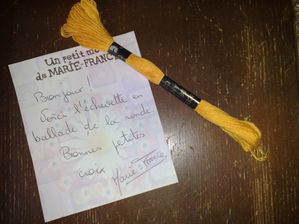 Un petit mot
de MARIE-FRANCE
Bonjour !
Voici l'échevette en
ballade de la ronde
Bonnes petites
croix
Marie-France